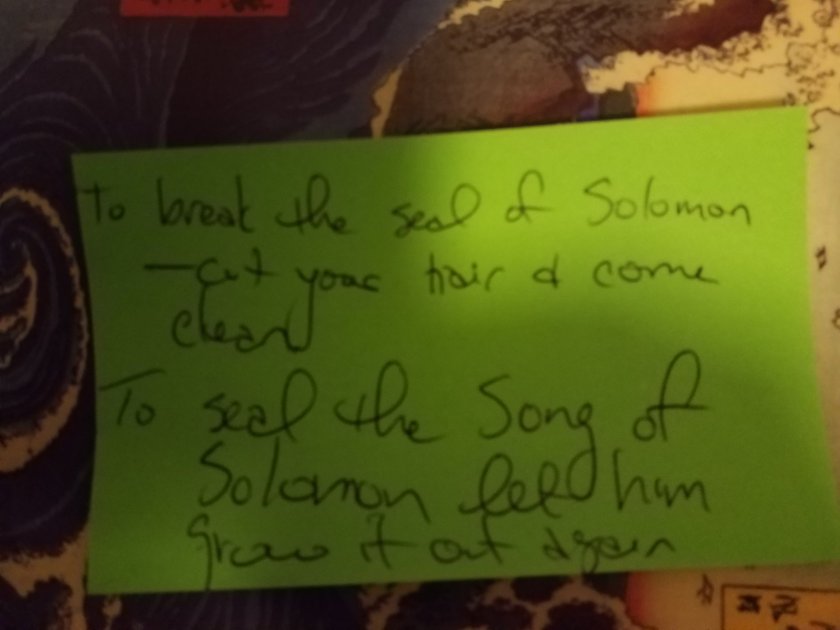 To break the seal of Solomon
— cut your hair & come
clean
To seal the Song of
Solomon let him
grow it out again